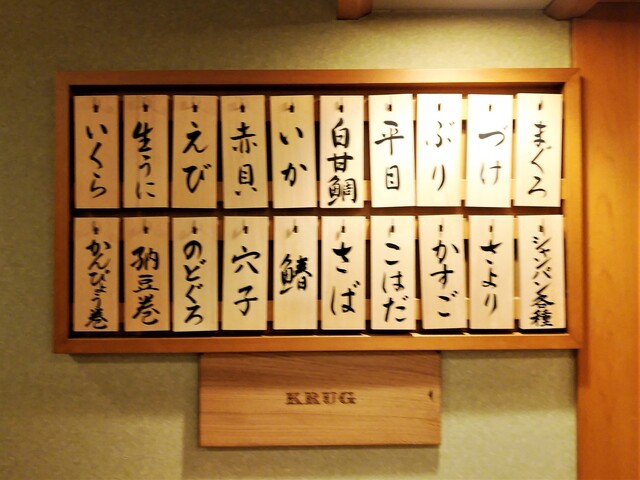 まぐろ
づけ
ぶり
平目
白甘鯛
いか
赤貝
えび
生うに
いくら
シャンパン各種
さより
かすご
こはだ
さば
鰆
穴子
のどぐろ
納豆巻
かんぴょう巻
KRUG